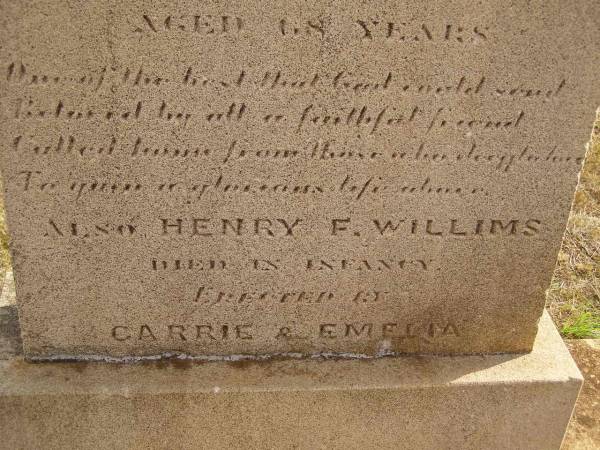 AGED 68 YEARS
One of the best that God could send
Beloved by all a faithful friend
Called home from those who deeply love
To gain a glorious life above.
ALSO HENRY F. WILLIMS
DIED IN INFANCY
ERECTED BY
CARRIE & EMELIA